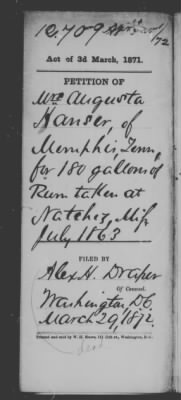 12,709
/72
Act of 3d March, 1871.
PETITION OF
Mrs Augusta
Hanser, of
Memphis, Tenn,
for 180 gallons of
Rum taken at
Natchez, Miss
July 1863
FILED BY
Alex H. Draper
Of Counsel.
Washington D.C.
March 29, 1872.
Printed and sold by W. H. Moore, 511 11th st., Washington, D. C.